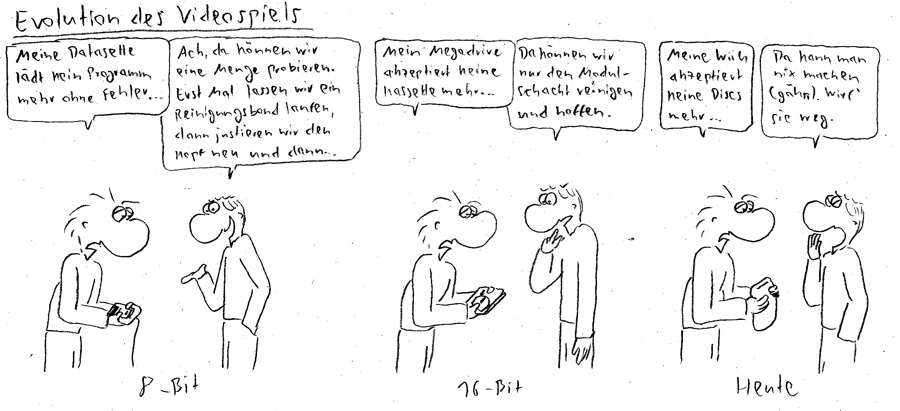 Evolution des Videospiels
Meine Datasette
lädt kein Programm
mehr ohne Fehler...
Ach, da können wir
eine Menge probieren.
Erst Mal lassen wir ein
Reinigungsband laufen,
dann justieren wir den
Kopf neu und dann...
Mein Megadrive
akzeptiert keine
Kassette mehr...
Da können wir
nur den Modul-
schacht reinigen
und hoffen.
Meine Wiih
akzeptiert
keine Discs
mehr...
Da kann man
nix machen
(gähn). Wirf
sie weg.
8-Bit
16-Bit
Heute